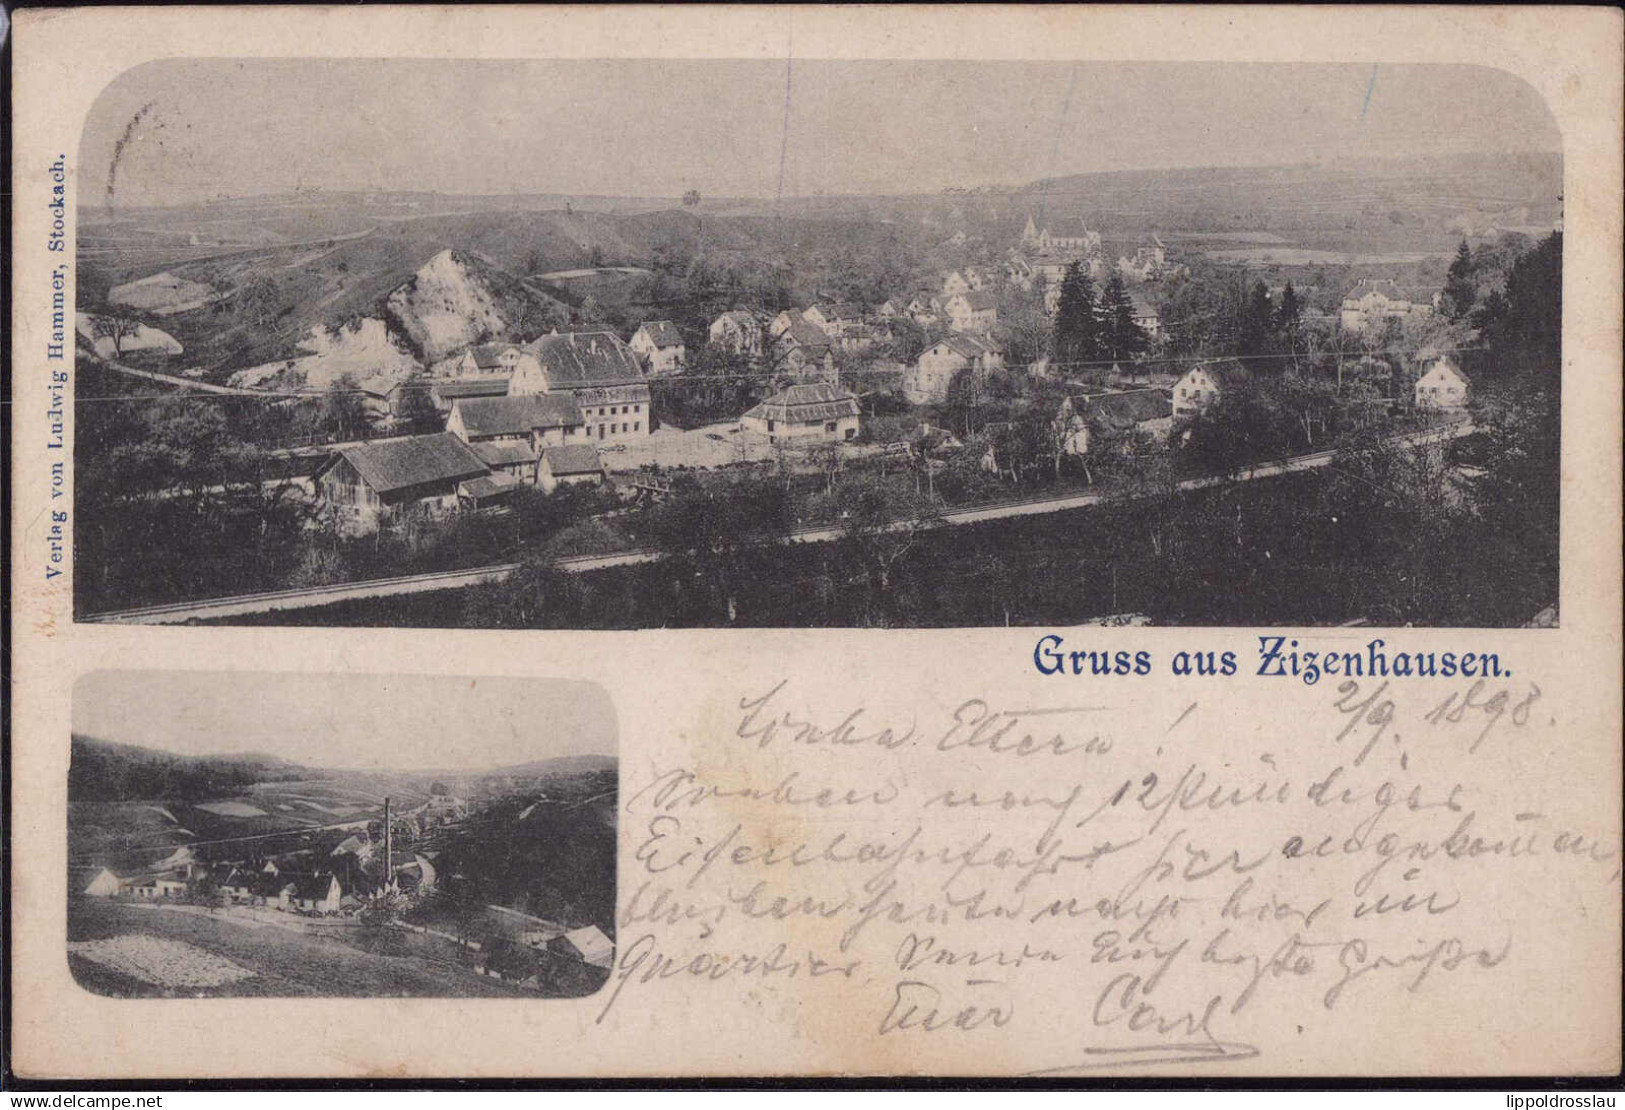 Verlag von Ludwig Hammer, Stockach.
Gruss aus Zizenhausen.
2/9. 1898.
Liebe Eltern!
Soeben nach 12stündiger
Eisenbahnfahrt hier angekommen,
bleiben heute Nacht hier im
Quartier. Sende Euch beste Grüße
Euer Carl.
lippoldrosslau